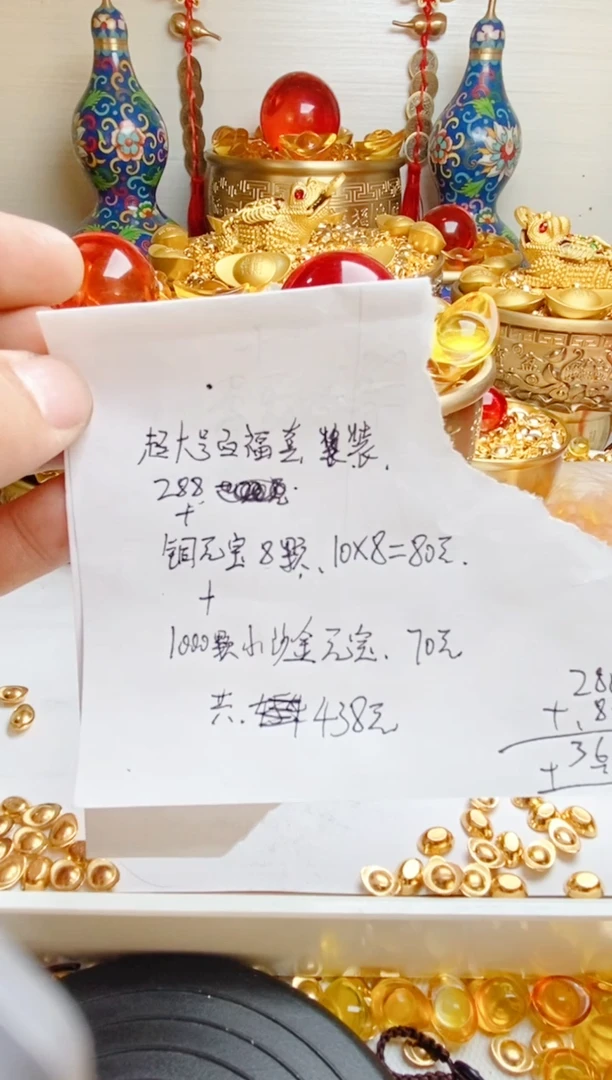 超大号百福套装.
288
+
铜元宝8颗、10×8=80元.
+
1000颗小沙金元宝、70元
共. 438元
28
+.8
36
+